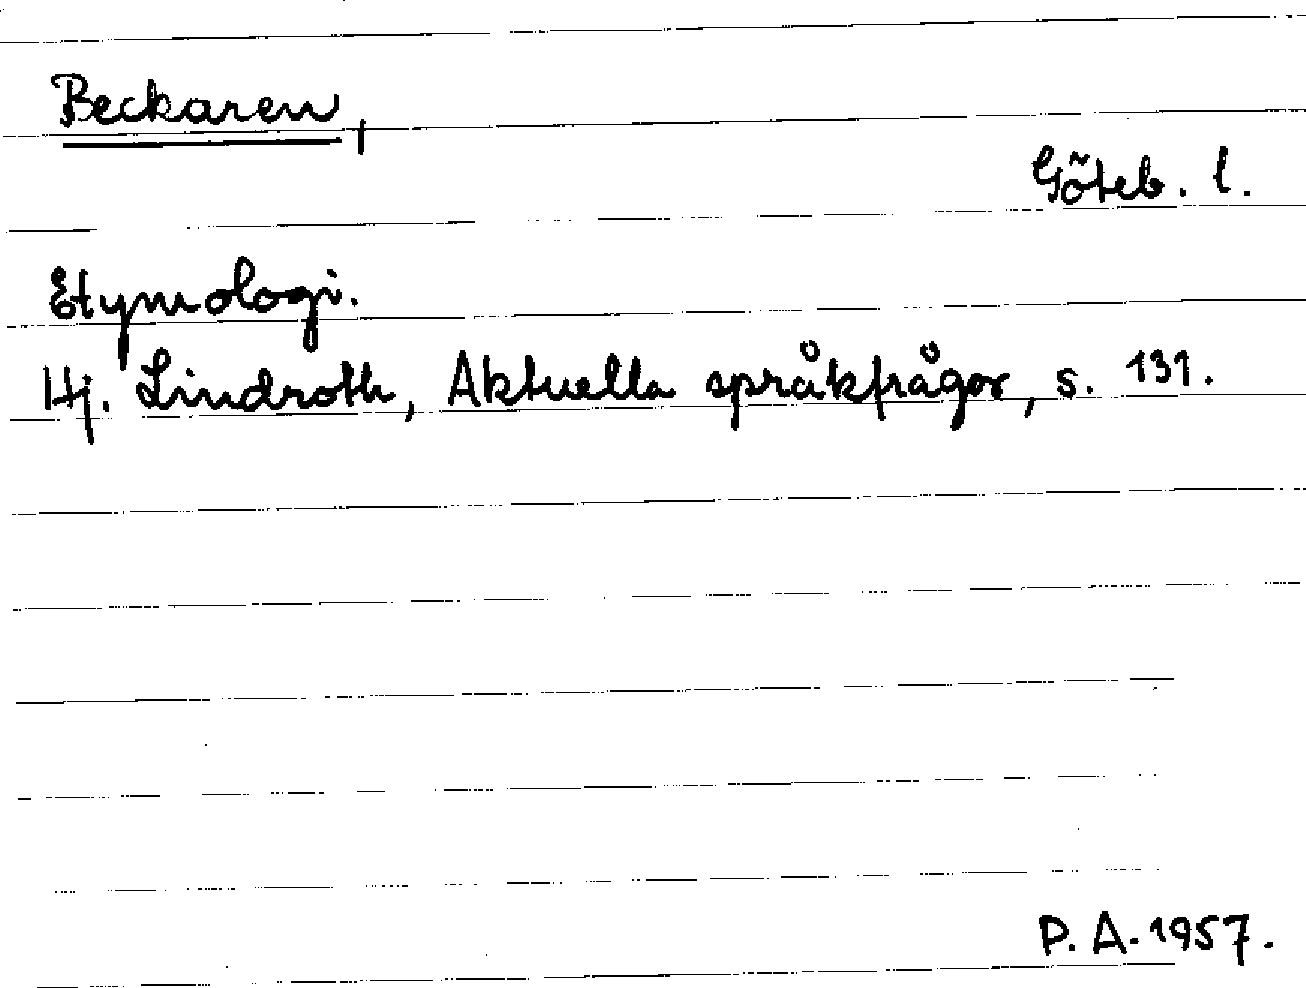 Beckaren,
Göteb. l.
Etymologi.
Hj. Lindroth, Aktuella språkfrågor, s. 131.
P. A. 1957.